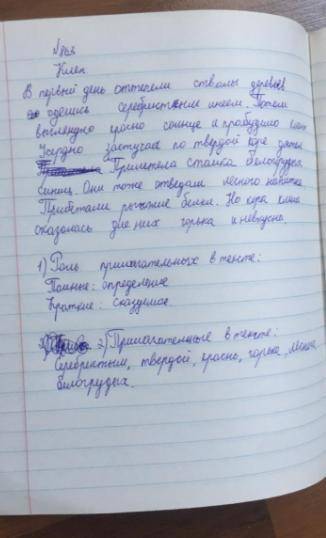 №863
Клен
В первый день оттепели стволы деревьев
оделись серебристым инеем. Потом
выглянуло красно солнце и пробудило
Усердно застучал по твердой коре дятел
Прилетела стайка белогрудых
синиц. Они тоже отведали лесного напитка
Прибежали рыжие белки. Но кора клена
оказалась для них горька и невкусна.
1) Роль прилагательных в тексте:
Полные: определение
Краткие: сказуемое.
2) Прилагательные в тексте:
Серебристым, твердой, красно, горька, лесного
белогрудых.